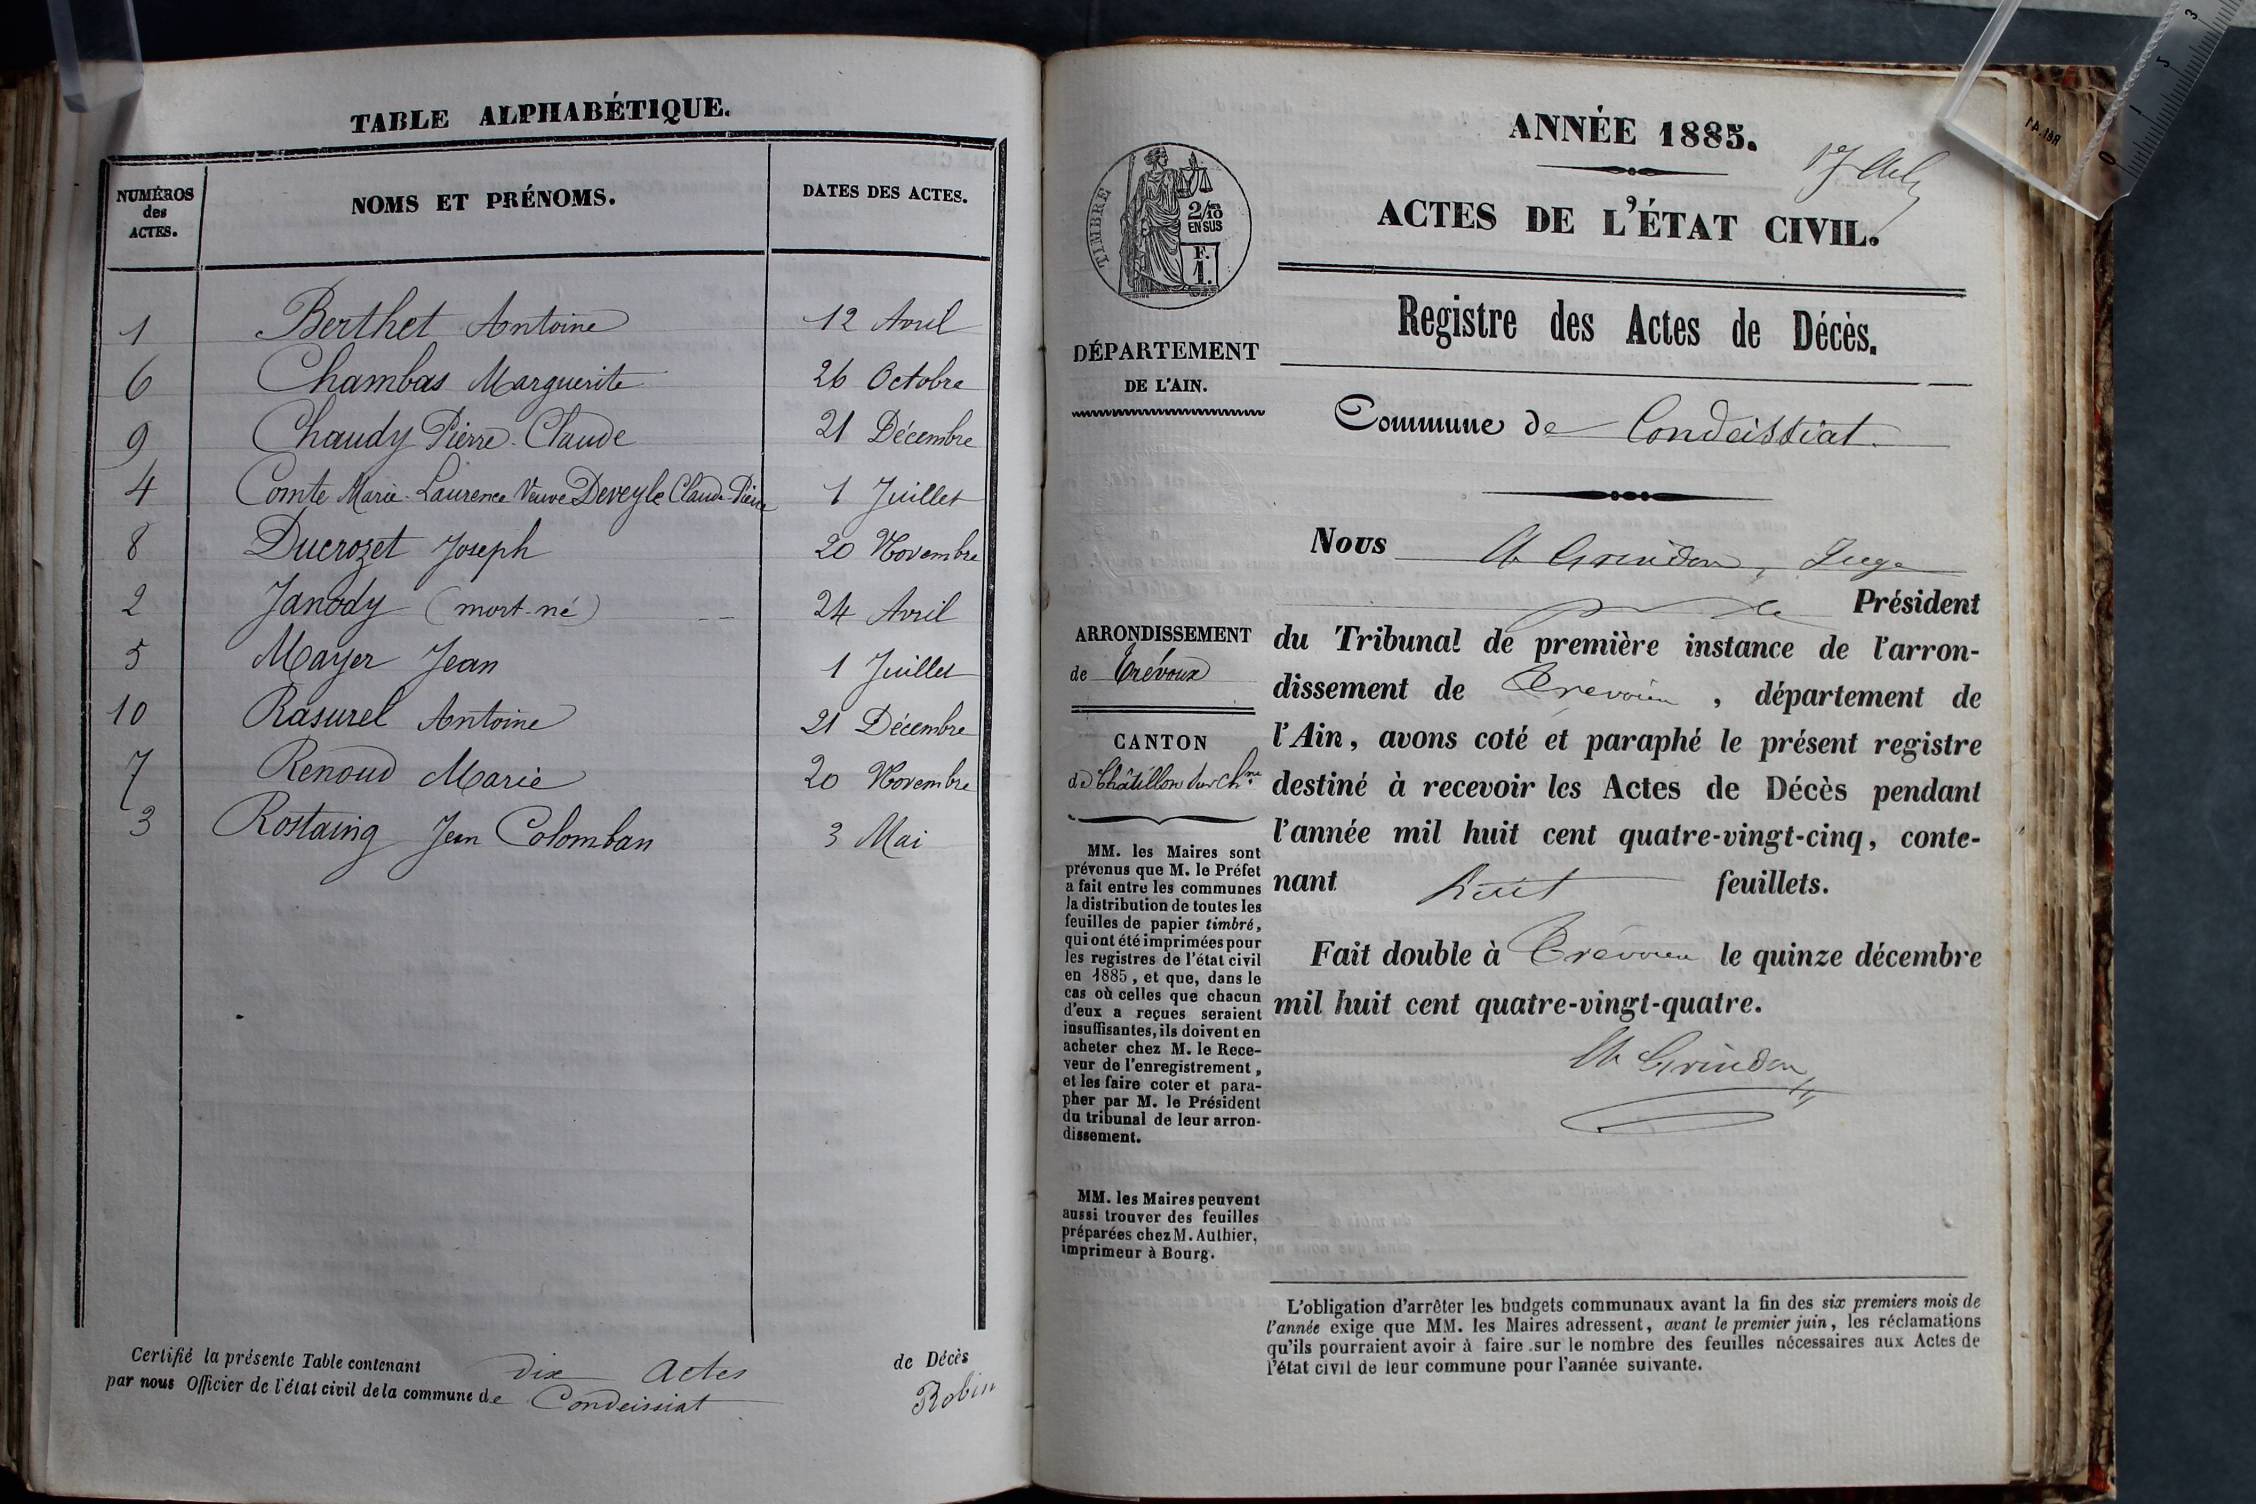 TABLE ALPHABÉTIQUE.
NUMÉROS des ACTES. NOMS ET PRÉNOMS. DATES DES ACTES.
1 Berthet Antoine 12 Avril
6 Chambas Marguerite 26 Octobre
9 Chaudy Pierre-Claude 21 Décembre
4 Comte Marie-Laurence Veuve Deveyle Claude-Pierre 1 Juillet
8 Ducrozet Joseph 20 Novembre
2 Janody (mort-né) 24 Avril
5 Mayer Jean 1 Juillet
10 Rasurel Antoine 21 Décembre
7 Renoud Marie 20 Novembre
3 Rostaing Jean Colomban 3 Mai
Certifié la présente Table contenant dix actes de Décès
par nous Officier de l'état civil de la commune de Condeissiat
Robin
ANNÉE 1885.
ACTES DE L'ÉTAT CIVIL.
TIMBRE
2/10 EN SUS
F. 1.
Registre des Actes de Décès.
DÉPARTEMENT
DE L'AIN.
Commune de Condeissiat
ARRONDISSEMENT
de Trévoux
CANTON
de Châtillon sur Chne
MM. les Maires sont
prévenus que M. le Préfet
a fait entre les communes
la distribution de toutes les
feuilles de papier timbré,
qui ont été imprimées pour
les registres de l'état civil
en 1885, et que, dans le
cas où celles que chacun
d'eux a reçues seraient
insuffisantes, ils doivent en
acheter chez M. le Rece-
veur de l'enregistrement,
et les faire coter et para-
pher par M. le Président
du tribunal de leur arron-
dissement.
MM. les Maires peuvent
aussi trouver des feuilles
préparées chez M. Authier,
imprimeur à Bourg.
Nous Grindon, Juge
Président
du Tribunal de première instance de l'arron-
dissement de Trévoux, département de
l'Ain, avons coté et paraphé le présent registre
destiné à recevoir les Actes de Décès pendant
l'année mil huit cent quatre-vingt-cinq, conte-
nant huit feuillets.
Fait double à Trévoux le quinze décembre
mil huit cent quatre-vingt-quatre.
Grindon
L'obligation d'arrêter les budgets communaux avant la fin des six premiers mois de
l'année exige que MM. les Maires adressent, avant le premier juin, les réclamations
qu'ils pourraient avoir à faire sur le nombre des feuilles nécessaires aux Actes de
l'état civil de leur commune pour l'année suivante.
0 1 2 3